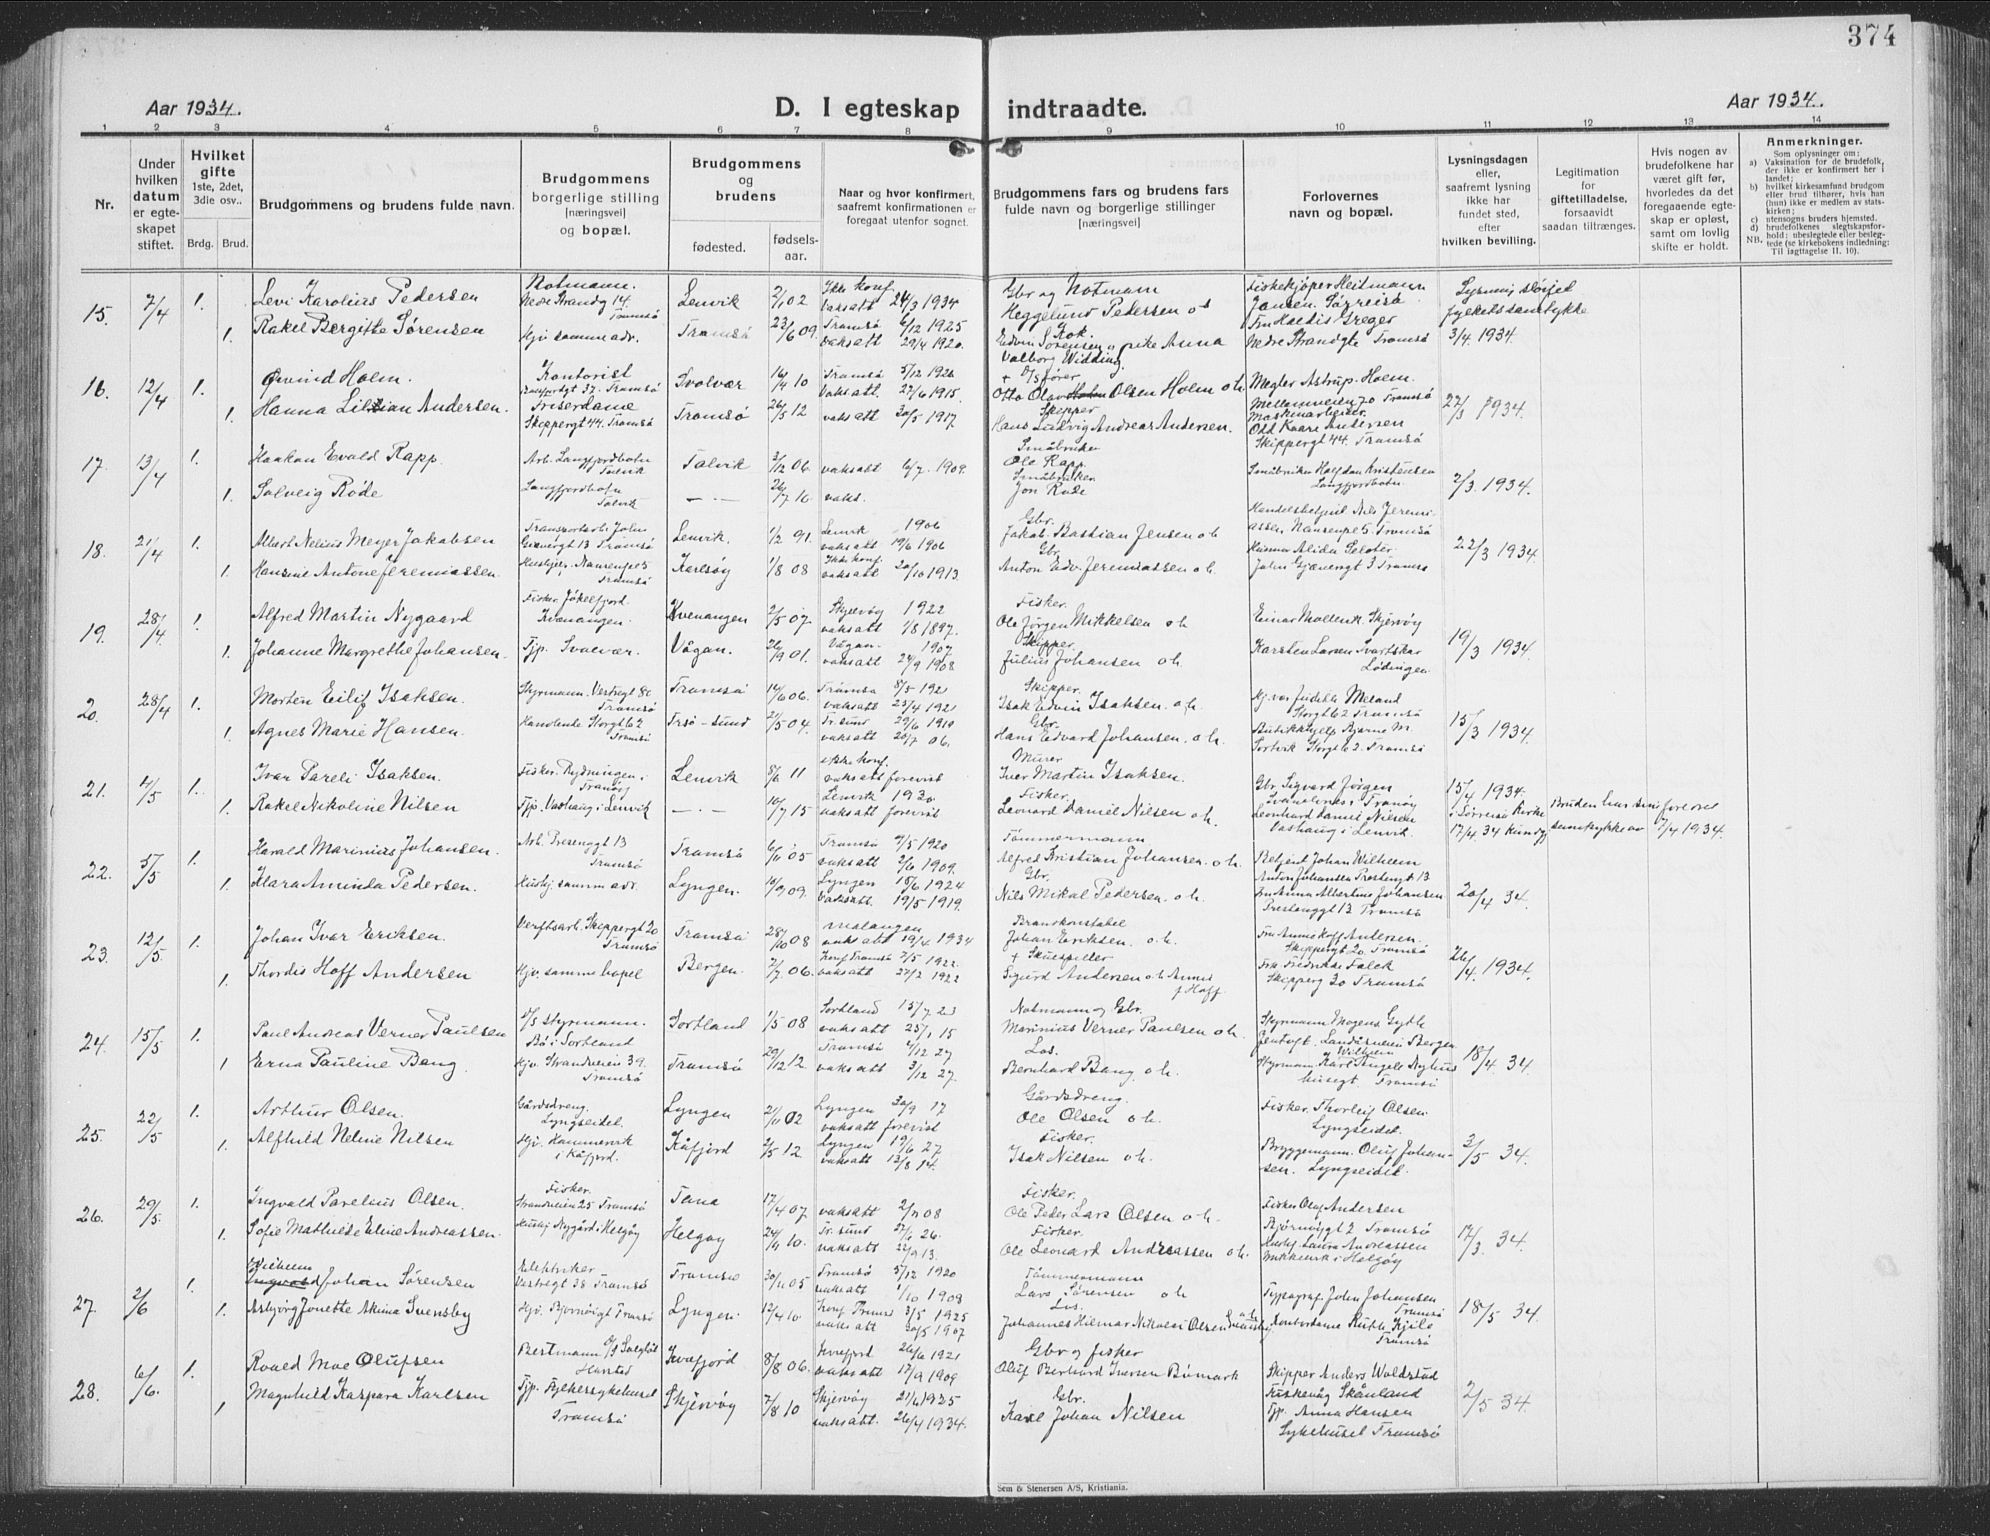 374
Aar 1934.
D. I egteskap indtraadte.
Aar 1934.
1 2 3 4 5 6 7 8 9 10 11 12 13 14
Nr.
Under hvilken datum er egteskapet stiftet.
Hvilket gifte 1ste, 2det, 3die osv..
Brdg. Brud.
Brudgommens og brudens fulde navn.
Brudgommens borgerlige stilling [næringsvei] og bopæl.
Brudgommens og brudens
fødested.
fødsels-aar.
Naar og hvor konfirmert, saafremt konfirmationen er foregaat utenfor sognet.
Brudgommens fars og brudens fars fulde navn og borgerlige stillinger [næringsvei]
Forlovernes navn og bopæl.
Lysningsdagen eller, saafremt lysning ikke har fundet sted, efter hvilken bevilling.
Legitimation for giftetilladelse, forsaavidt saadan tiltrænges.
Hvis nogen av brudefolkene har været gift før, hvorledes da det foregaaende egteskap er opløst, samt om lovlig skifte er holdt.
Anmerkninger.
Som oplysninger om:
a) Vaksination for de brudefolk, der ikke er konfirmert her i landet;
b) hvilket kirkesamfund brudgom eller brud tilhører, hvis han (hun) ikke er medlem av statskirken;
c) utensogns bruders hjemsted.
d) brudefolkenes slegtskapsforhold; ubeslegtede eller beslegtede (se kirkebokens indledning: Til iagttagelse II. 10).
NB.
15. 7/4 1. Levi Karolius Pedersen Notmann. Nedre Strandg 14. Tromsø Lenvik 2/1 02 Ikke konf. vaksatt 24/3 1934 Gbr og Notmann Heggelund Pedersen o h Fiskekjøper Heitmann Jansen. Sørreisa
1. Rakel Bergitte Sørensen Hjv samme adr. Tromsø 23/6 09. Tromsø 6/12 1925 vaksatt 29/4 1920. Kok. Edvin Sørensen og pike Anna Valborg Widding. Nedre Strandgte Tromsø 3/4. 1934.
16. 12/4 1. Øivind Holm. Kontorist Tromsø Svolvær 16/4 10 Tromsø 5/12 1926 vaksatt. 27/6 1915. Otto Olav Olsen Holm o h. Megler Astrup Holm. Mellemveien 70 Tromsø 22/3 1934.
1. Hanna Lillian Andersen. Friserdame Skippergt 44. Tromsø Tromsø 26/5 12 vaksatt 30/5 1917. Skipper Hans Ludvig Andreas Andersen. Maskinarbeider. Odd Kaare Andersen Skippergt 44. Tromsø
17. 13/4 1. Haakon Evald Rapp. Arb. Langfjordbotn Talvik Talvik 3/12 06. vaksatt 6/7. 1909. Småbruker Ole Rapp. Småbruker Halfdan Kristensen Langfjordbotn. 2/3. 1934.
1. Solveig Røde Langfjordbotn Talvik — " — 26/7 10. vaks. Småbruker. Jon Røde
18. 21/4 1. Albert Nelius Meyer Jakobsen Transportarb. John Gjævergt 13 Tromsø Lenvik. 1/2 91. Lenvik 1906 vaksatt 19/6 1906 Gbr. Jakob Bastian Jensen o h Handelsbetjent Nils Jeremiassen, Nansenpl 5. Tromsø 22/3 1934.
1. Hansine Antone Jeremiassen. Hushjelp. Nansenpl 5 Tromsø Karlsøy 1/8 08 Ikke konf. vaksatt 20/10 1913. Gbr. Anton Edv. Jeremiassen o. h. Alida John Gjævergt 3 Tromsø
19. 28/4 1. Alfred Martin Nygaard Fisker. Jøkelfjord. Kvænangen. Kvenangen 2/5 07. Skjervøy 1922 vaksatt 1/8 1897. Fisker. Ole Jørgen Mikkelsen o h Einar Skjervøy 19/3 1934.
1. Johanne Margrethe Johansen. Tjp. Svolvær. Vågan. 26/9 01. Vågan. 1907 vaksatt 24/9 1908 Skipper. Julius Johansen o h. Karsten Larsen Svartskar Lødingen.
20. 28/4 1. Morten Eilif Isaksen. Styrmann. Vestregt 80 Tromsø Tromsø 14/6 06. Tromsø 8/5 1921 vaksatt 23/4 1921 Skipper. Isak Edvin Isaksen. o h. Meland Storgt 62 Tromsø 15/3 1934.
1. Agnes Marie Hansen. Storgt 62 Tromsø Trsø-sund 2/5 04. Tr. sund 29/6 1919 vaksatt 20/7 06. Gbr. Hans Edvard Johansen. o h. Bjarne M. Storgt 62. Tromsø
21. 4/5 1. Ivar Pareli Isaksen. Fisker. Rydningen i Tranøy Lenvik 8/6 11 ikke konf. vaksatt forevist Murer Iver Martin Isaksen. Gbr. Sigvard Jørgen i Tranøy 15/4 1934.
1. Rakel Nikoline Nilsen Tjp. Vashaug i Lenvik — " — 10/7 15 Lenvik 1930. vaksatt forevist Fisker. Leonard Daniel Nilsen o h. Leonhard Daniel Nilsen Vashaug i Lenvik. i Sørreisa Kirke 17/4 34 Bruden har sin fars samtykke av 7/4 1934.
22. 5/5 1. Harald Marinius Johansen. Arb. 13 Tromsø Tromsø 6/11 05 Tromsø 9/5 1920 vaksatt 2/6 1909. Tømmermann Alfred Kristian Johansen. o h. Betjent Johan Wilhelm Anton Johansen 13. 20/4 34.
1. Klara Aminda Pedersen. Hushj. samme adr. Lyngen. 19/9 09. Lyngen 15/6 1924 vaksatt. 19/5 1919. Gbr. Nils Mikal Pedersen. o. h. Fru Anna Albertine Johansen 13 Tromsø
23. 12/5 1. Johan Ivar Eriksen. Verftsarb. Skippergt 20 Tromsø Tromsø 28/10 08 Malangen vaksatt 19/4 1934 Brandkonstabel Johan Eriksen. o. h. Fru Anna Hoff Andersen. Skippergt 20. Tromsø 26/4. 1934.
1. Thordis Hoff Andersen Hjv. samme bopel Bergen. 2/7 06. Konf. Tromsø 7/5 1922. vaksatt 27/2 1922 + Skuespiller Sigurd Andersen o h Anna f. Hoff. Frk Fredrikke Falck Skipperg 20 Tromsø
24. 15/5 1. Paul Andreas Verner Paulsen Styrmann. Bø i Sortland Sortland 1/5 08 Sortland 15/7 23 vaksatt 25/1 15 Notmann og Gbr. Marinius Verner Paulsen o h. Styrmann Mogens Gythe Landåsveien Bergen 18/4 34.
1 Erna Pauline Bang. Hjv. Strandveien 39. Tromsø Tromsø 29/12 12. Tromsø 4/12 27 vaksatt 3/12 27. Los. Bernhard Bang. o h. Wilhelm Styrmann Karl Tromsø
25. 22/5 1. Arthur Olsen. Gårdsdreng. Lyngseidet. Lyngen 21/11 02 Lyngen 30/9 17 vaksatt forevist Gårdsdreng. Ole Olsen o h. Fisker. Thorleif Olsen. Lyngseidet. 3/5 34.
1. Alfhild Neline Nilsen Hjv. Hammervik i Kåfjord. Kåfjord 2/5 12. Lyngen 19/6 27 vaksatt 13/8 14. Fisker. Isak Nilsen o h. Bryggemann. Oluf Johansen. Lyngseidet.
26. 29/5. 1. Ingvald Parelius Olsen. Fisker. Strandveien 25 Tromsø Tana 17/4 07. vaksatt 2/7 08 Fisker. Ole Peder Lars Olsen o h. Fisker Olaf Andersen Bjørnøygt 2 Tromsø 17/3. 34.
1. Sofie Mathilde Eline Andreassen. Hushj Nygård i Helgøy Helgøy 24/11 10. Tr. sund 27/6 26. vaksatt 22/9 13. Fisker. Ole Leonard Andreassen o h. Hushj. Laura Andreassen i Helgøy
27. 2/6 1. Wilhelm Johan Sørensen Elektriker Vestregt 38 Tromsø Tromsø 30/11 05 Tromsø 5/12 1920 vaksatt 1/10 1908 Tømmermann Lars Sørensen o h Typograf. John Johansen Tromsø 18/5 34.
1. Asbjørg Jonette Akina Svensby Hjv. Bjørnøigt Tromsø Lyngen. 12/4 10 Konf. Tromsø 3/5 1925 vaksatt 30/5 1907 Los. Johannes Hilmar Nikolai Olsen Svensby Kontordame Ruth Kjile Tromsø
28. 6/6. 1. Roald Moe Olufsen Bestmann Harstad Kvefjord 8/8 06. Kvefjord 26/6 1921 vaksatt 17/9 1909 Gbr og fisker Oluf Berhard Iversen Bømark Skipper Anders Woldstad Skånland 2/5 34.
1 Magnhild Kaspara Karlsen Tjp. Fylkessykehuset Tromsø Skjervøy 7/8 10 Skjervøy 21/6 1925 vaksatt. 26/4 1934. Gbr. Karl Johan Nilsen Tjp. Anna Hansen Sykehuset Tromsø
Sem & Stenersen A/S, Kristiania.